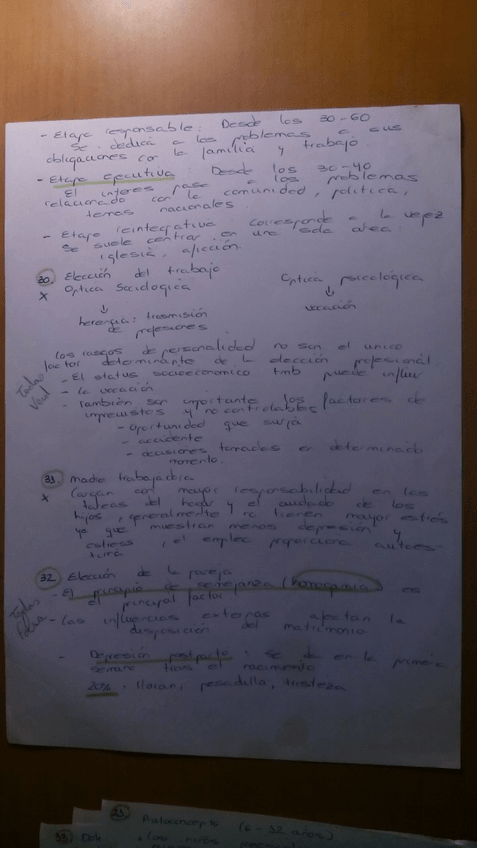 - Etapa responsable: Desde los 30-60
Se dedica a los problemas a sus
obligaciones con la familia y trabajo.
- Etapa ejecutiva: Desde los 30-40
El interes pasa a los problemas
relacionado con la comunidad, politica,
temas nacionales.
- Etapa reintegrativa: corresponde a la vejez
Se suele centrar en una sola area:
iglesia, afición.
30. Elección del trabajo
x Optica Sociologica Optica psicológica
↓ ↓
herencia: trasmisión vocación
de profesiones
Los rasgos de personalidad no son el unico
factor determinante de la elección profesional
- El status socioeconomico tmb puede influir
- La vocación
- También son importante los factores de
imprevistos y no controlables
- Oportunidad que surja
- accidente
- decisiones tomadas en determinado
momento.
31. Madre trabajadora
x Cargan con mayor responsabilidad en las
tareas del hogar y el cuidado de los
hijos, generalmente no tienen mayor estrés
ya que muestran menos depresión y
estress, el empleo proporciona autoes-
tima
32. Elección de la pareja
- El principio de semejanza (homogamia) es
el principal factor
- Las influencias externas afectan la
disposición del matrimonio
- Depresión postparto: se da en la primera
semana tras el nacimiento
20%. lloran, pesadilla, tristeza
29. Autoconcepto (6-32 años)
33.